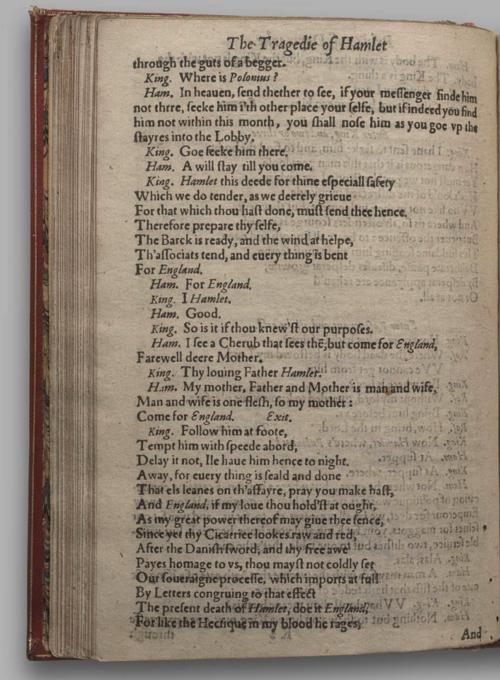 The Tragedie of Hamlet
through the guts of a begger.
King. Where is Polonius?
Ham. In heauen, send thether to see, if your messenger finde him
not thrre, seeke him i'th other place your selfe, but if indeed you find
him not within this month, you shall nose him as you goe vp the
stayres into the Lobby,
King. Goe seeke him there.
Ham. A will stay till you come.
King. Hamlet this deede for thine especiall safety
Which we do tender, as we deerely grieue
For that which thou hast done, must send thee hence.
Therefore prepare thy selfe,
The Barck is ready, and the wind at helpe,
Th'associats tend, and euery thing is bent
For England.
Ham. For England.
King. I Hamlet.
Ham. Good.
King. So is it if thou knew'st our purposes.
Ham. I see a Cherub that sees thē, but come for England,
Farewell deere Mother.
King. Thy louing Father Hamlet.
Ham. My mother, Father and Mother is man and wife,
Man and wife is one flesh, so my mother:
Come for England. Exit.
King. Follow him at foote,
Tempt him with speede abord,
Delay it not, Ile haue him hence to night.
Away, for euery thing is seald and done
That els leanes on th'affayre, pray you make hast,
And England, if my loue thou hold'st at ought,
As my great power thereof may giue thee sence,
Since yet thy Cicatrice lookes raw and red,
After the Danish sword, and thy free awe
Payes homage to vs, thou mayst not coldly set
Our soueraigne processe, which imports at full
By Letters congruing to that effect
The present death of Hamlet, doe it England,
For like the Hectique in my blood he rages,
And